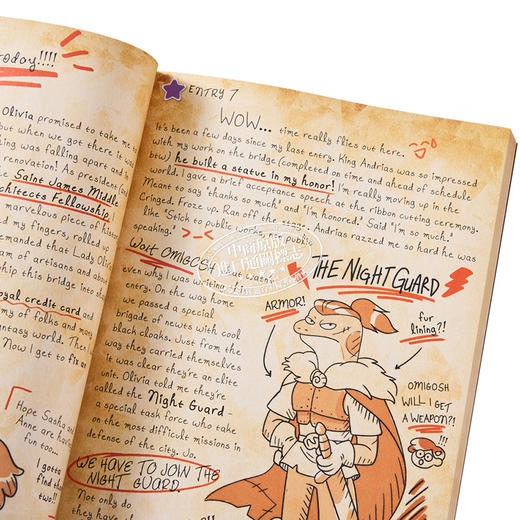 today!!!!
Olivia promised to take me to
but when we got there it w
thing was falling apart and t
renovation! As president (an
the Saint James Middle
Architects Fellowship,
marvelous piece of hist
d my fingers, rolled up
demanded that Lady Oliv
am of artisans and abou
ship this bridge into sha
royal credit card and
my of folks and many
antasy world. Then I
Now I get to fix a
Hope Sasha
Anne are hav
fun too...
I gotta
find the
two!
ENTRY 7
WOW... time really flies out here.
It's been a few days since my last entry. King Andrias was so impressed
with my work on the bridge (completed on time and ahead of schedule
btw) he built a statue in my honor! I'm really moving up in the
world. I gave a brief acceptance speech at the ribbon cutting ceremony.
Meant to say "thanks so much" and "I'm honored." Said "I'm so much."
Cringed. Froze up. Ran off the stage. Andrias razzed me so hard he was
like "Stick to public works, not public
speaking." >_<
Wait OMIGOSH
even why I was writing this
entry. On the way home
we passed a special
brigade of newts with cool
black cloaks. Just from the
way they carried themselves
it was clear they're an elite
unit. Olivia told me they're
called the Night Guard -
a special task force who take
on the most difficult missions in
defense of the city. Jo.
WE HAVE TO JOIN THE
NIGHT GUARD.
Not only do
they have
THE NIGHT GUARD
ARMOR!
fur
lining?!
OMIGOSH
WILL I GET
A WEAPON?!